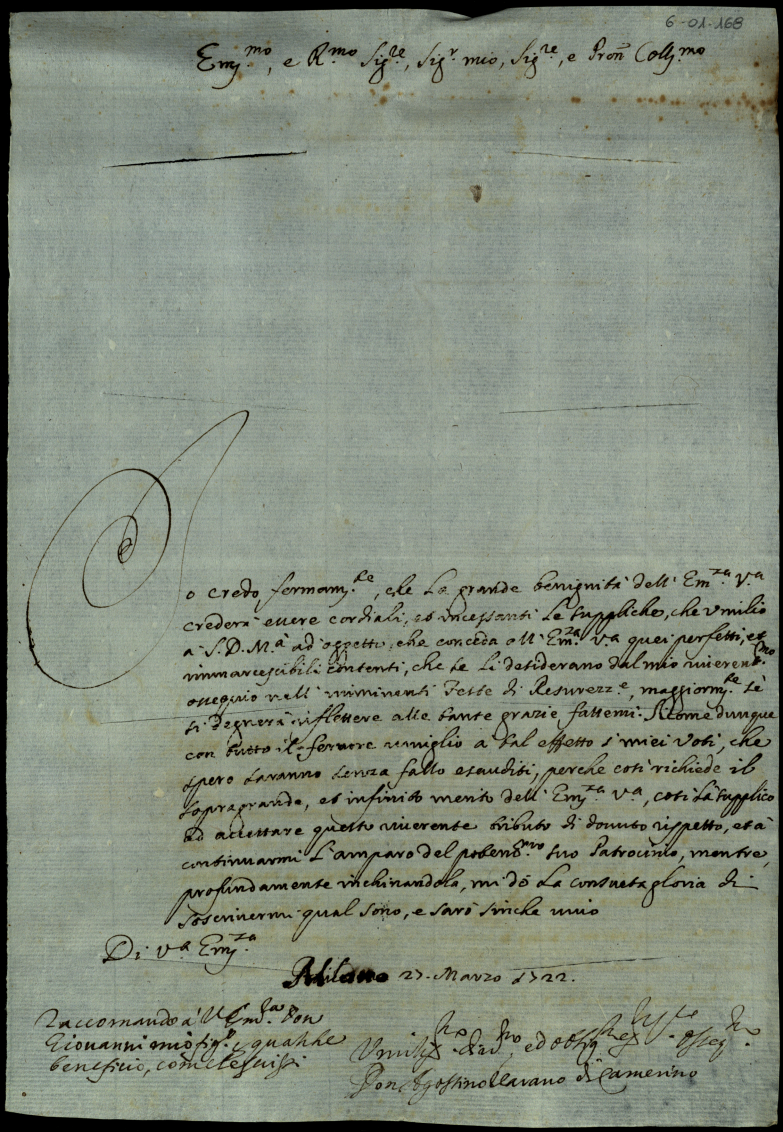 6-01-168
Em.mo, e R.mo Sig.re, Sig.r mio, Sig.re, e Pron Coll.mo
Io credo fermam.te, che la grande benignità dell' Em.za V.a
crederà essere cordiali, et incessanti le suppliche, che umilio
a S.D.M.à ad oggetto, che conceda all' Em.za V.a quei perfetti, et
immarcescibili contenti, che se li desiderano dal mio riverend.mo
ossequio nell' imminenti Feste di Resurezz.e, maggiorm.te se
si degnerà riflettere alle tante grazie fattemi. Come dunque
con tutto il fervore umiglio a tal effetto i miei voti, che
spero saranno senza fallo esauditi, perche così richiede il
sopragrande, et infinito merito dell' Em.za V.a, così la supplico
ad accettare questo riverente tributo di dovuto rispetto, et à
continuarmi l'amparo del potend.mo suo Patrocinio, mentre,
profundamente inchinandola, mi dò la consueta gloria di
soscrivermi qual sono, e sarò sinche vivo
Di V.a Em.za
Milano 27. Marzo 1722.
Raccomando à V. Em.za Don
Giovanni mio fig.o, qualche
beneficio, come le scrissi
Umiliss.o ed obblig
Don Agostino Varano di Camerino